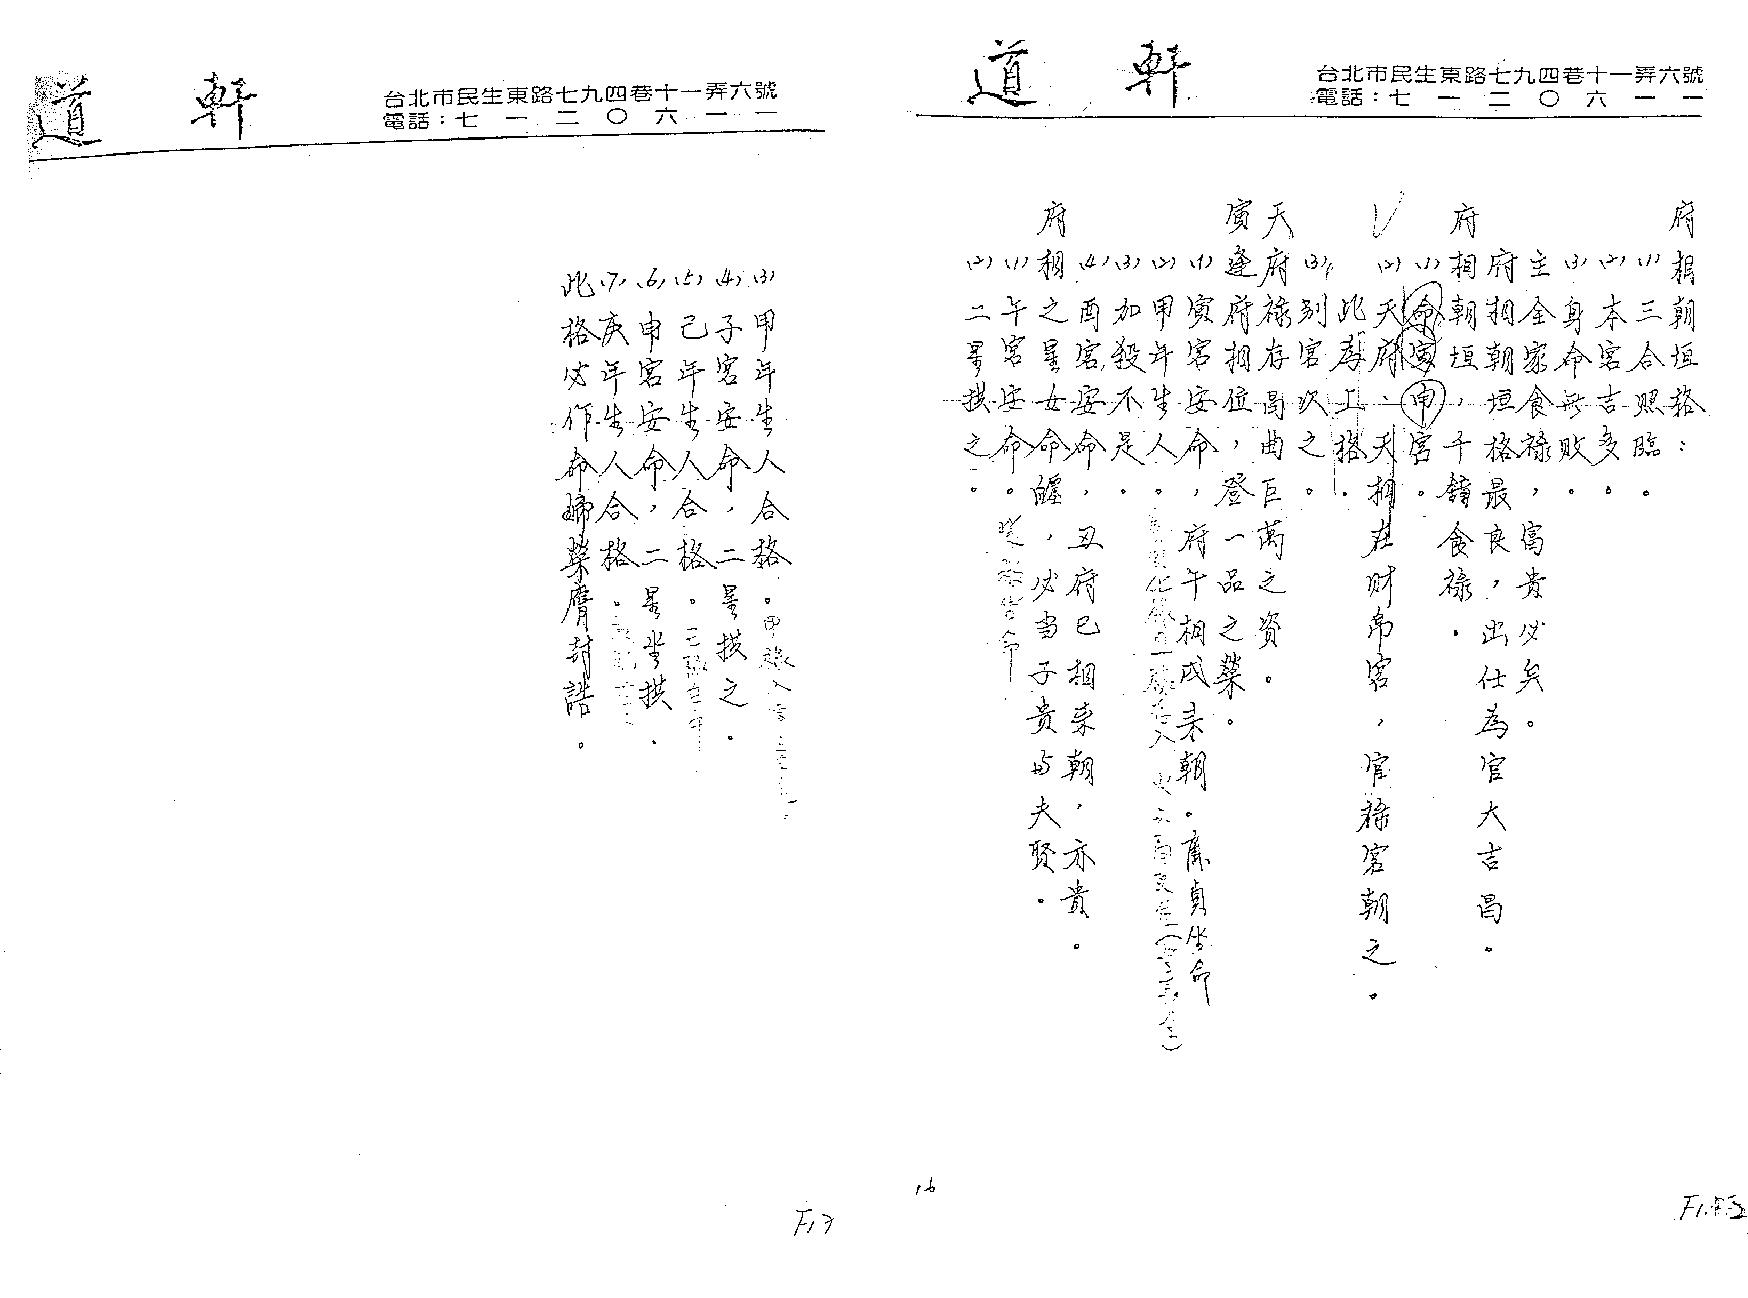 道軒
台北市民生東路七九四巷十一弄六號
電話：七一二〇六一一
府相朝垣格：
(1)三合照臨。
(2)本宮吉多。
(3)身命無敗。
主全家食祿，富貴必矣。
府相朝垣格最良，出仕為官大吉昌。
府相朝垣，千鍾食祿。
(1)命寅申宮。
(2)天府、天相在財帛宮，官祿宮朝之。
此為上格。
(3)別宮次之。
天府祿存昌曲，巨萬之資。
寅逢府相位，登一品之榮。
(1)寅宮安命，府午相戌來朝。廉貞坐命
(2)甲年生人。
(3)加殺不是。
(4)酉宮安命，丑府巳相來朝，亦貴。
府相之星女命纏，必当子貴与夫賢。
(1)午宮安命。
(2)二星拱之。
16
F1.
道軒
台北市民生東路七九四巷十一弄六號
電話：七一二〇六一一
(3)甲年生人合格。
(4)子宮安命，二星拱之。
(5)己年生人合格。
(6)申宮安命，二星坐拱.
(7)庚年生人合格。
此格必作命婦榮膺封誥。
F17